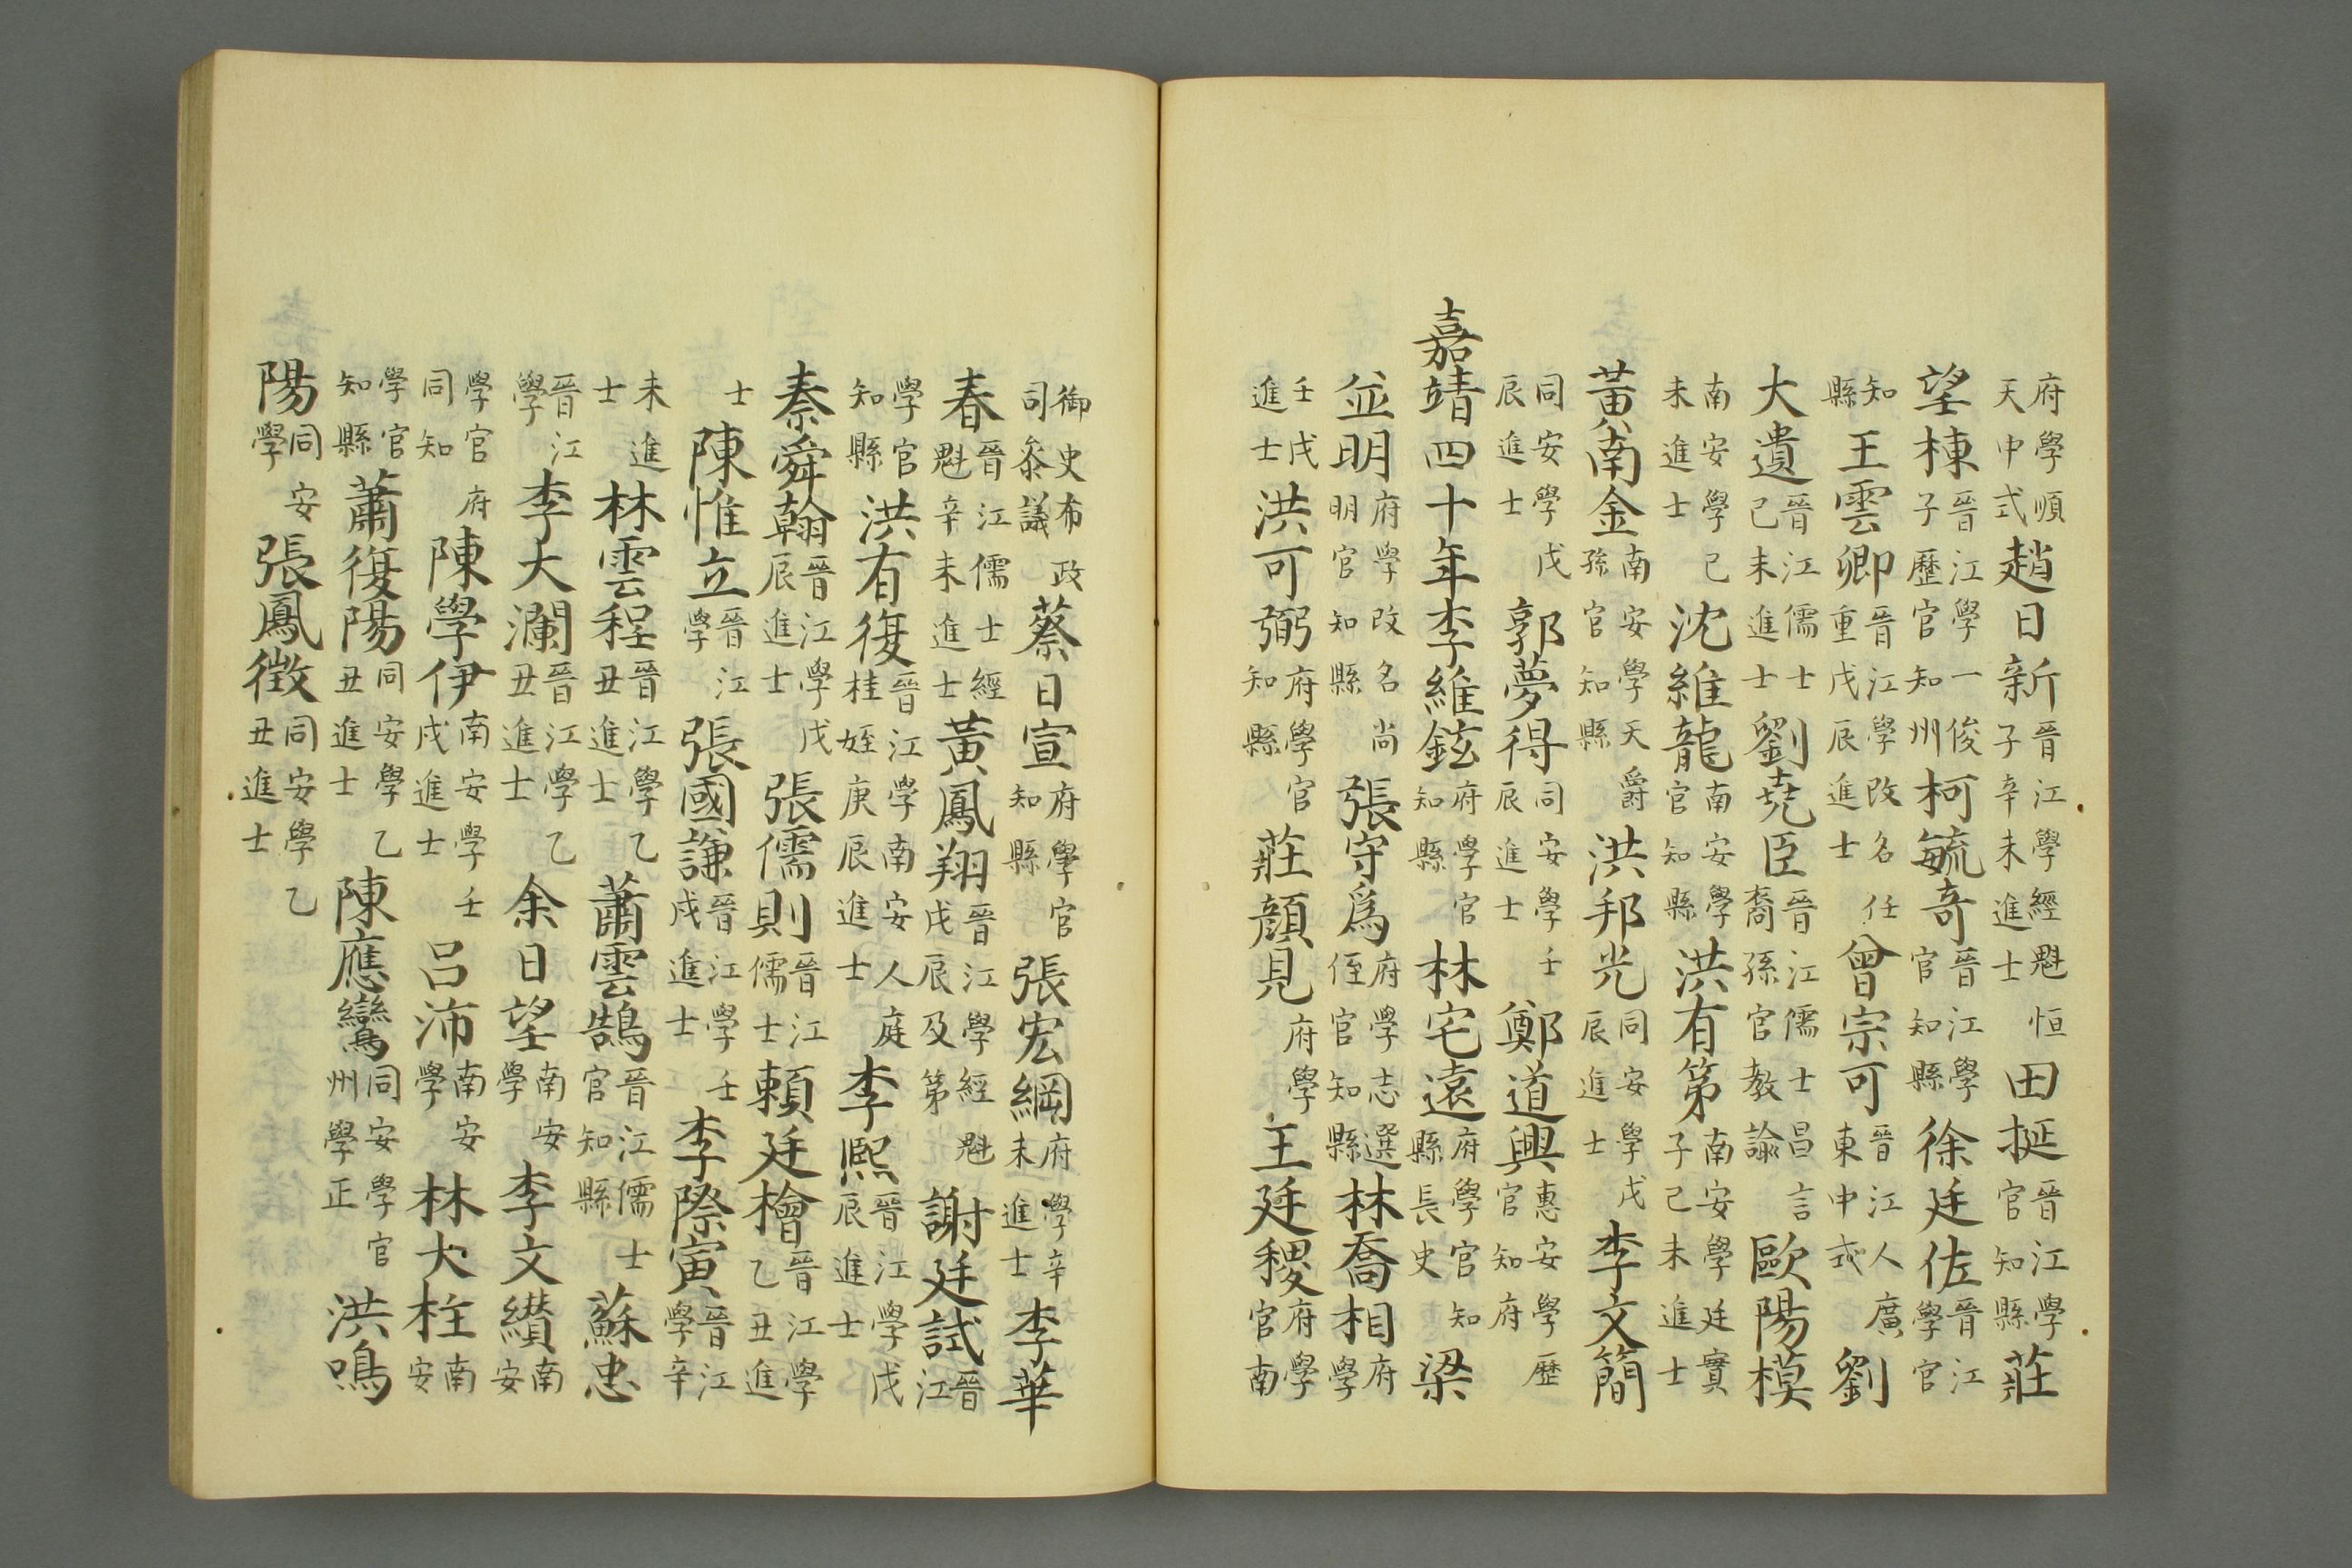 府學順天中式趙日新晉江學經魁恒子辛未進士田挻晉江學官知縣莊
望棟晉江學一俊子歷官知州柯毓奇晉江學官知縣徐廷佐晉江學官
知縣王雲卿晉江學改名任重戊辰進士曾宗可晉江人廣東中式劉
大遺晉江儒士己未進士劉堯臣晉江儒士昌言裔孫官教諭歐陽模
南安學己未進士沈維龍南安學官知縣洪有第南安學廷實子己未進士
黃南金南安學天爵孫官知縣洪邦光同安學戊辰進士李文簡
同安學戊辰進士郭夢得同安學壬辰進士鄭道興惠安學歷官知府
嘉靖四十年李維鉉府學官知縣林宅遠府學官知縣長史梁
並明府學改名尚明官知縣張守爲府學志選侄官知縣林喬相府學
壬戊進士洪可弼府學官知縣莊顔見府學王廷稷府學官南
御史布政司叅議蔡日宣府學官知縣張宏綱府學辛未進士李華
春晉江儒士經魁辛未進士黃鳳翔晉江學經魁戊辰及第謝廷試晉江
學官知縣洪有復晉江學南安人庭桂姪庚辰進士李熙晉江學戊辰進士
秦舜翰晉江學戊辰進士張儒則晉江儒士賴廷檜晉江學乙丑進
士陳惟立晉江學張國謙晉江學壬戌進士李際寅晉江學辛
未進士林雲程晉江學乙丑進士蕭雲鵠晉江儒士官知縣蘇忠
晉江學李大瀾晉江學乙丑進士余日望南安學李文纉南安
學官府同知陳學伊南安學壬戌進士呂沛南安學林大柱南安
學官知縣蕭復陽同安學乙丑進士陳應鸞同安學官州學正洪鳴
陽同安學張鳳徵同安學乙丑進士